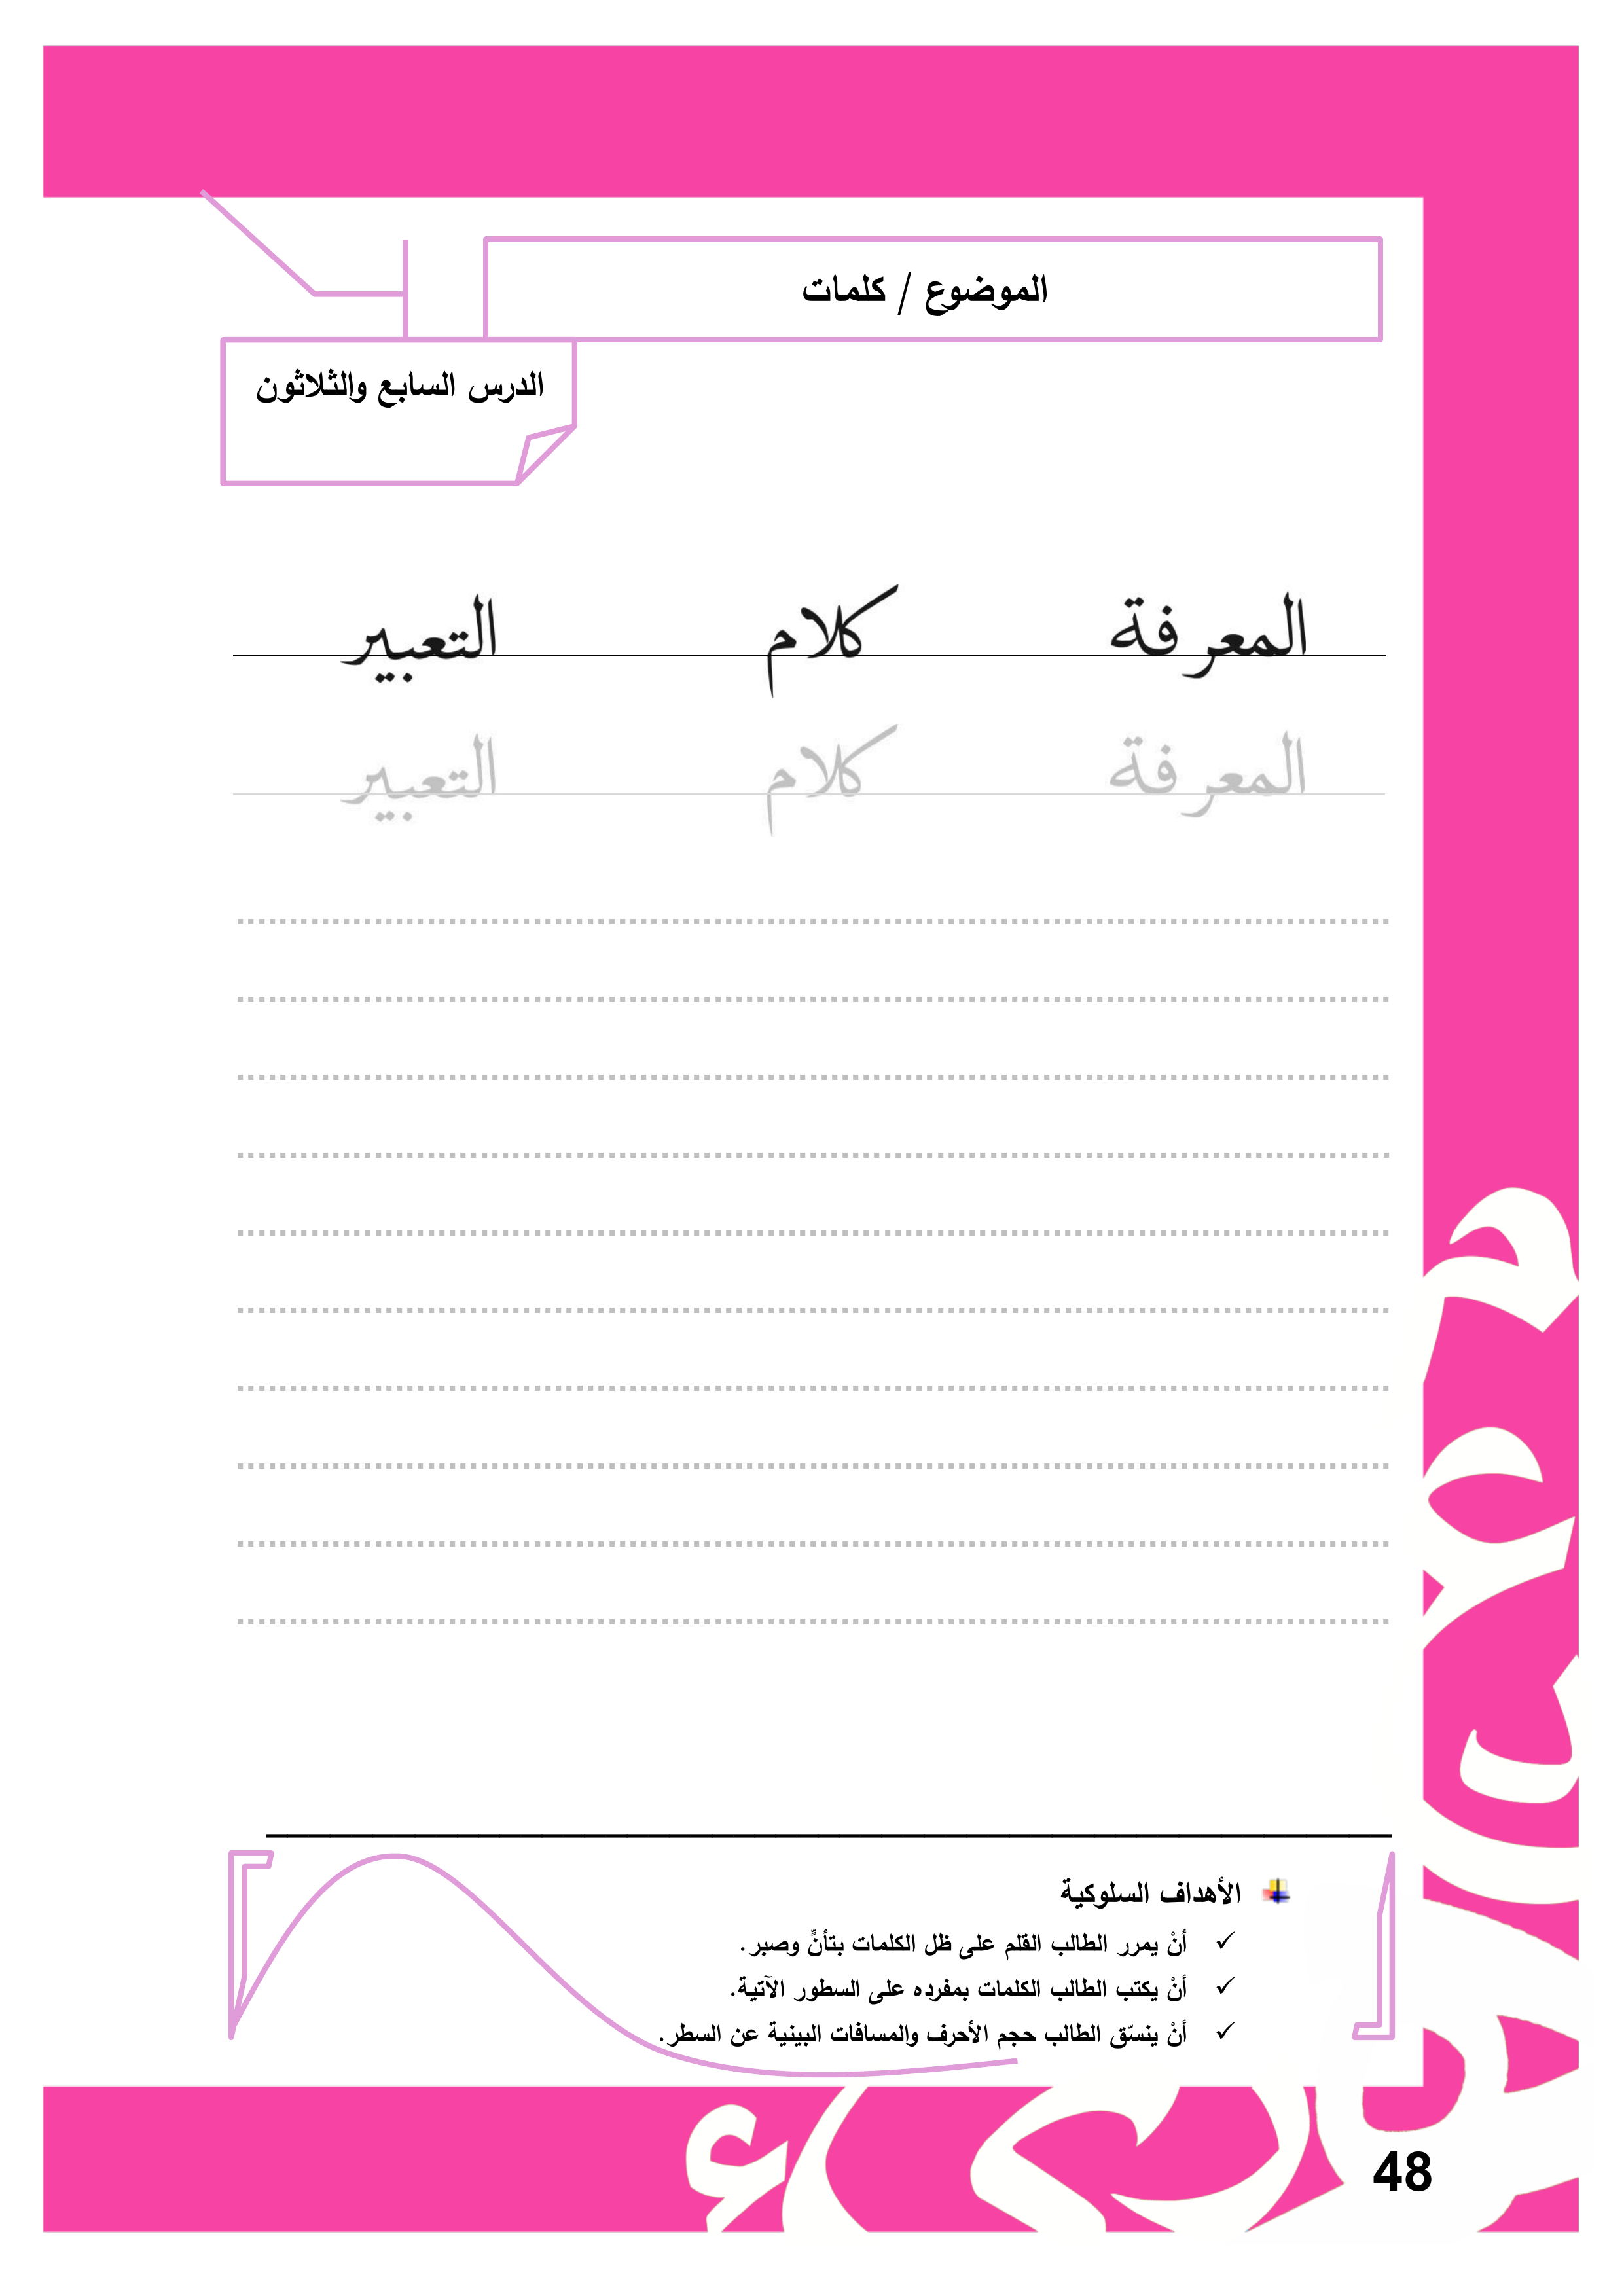 الموضوع / كلمات
الدرس السابع والثلاثون
المعرفة كلام التعبير
المعرفة كلام التعبير
الأهداف السلوكية
أنْ يمرر الطالب القلم على ظل الكلمات بتأنٍّ وصبر.
أنْ يكتب الطالب الكلمات بمفرده على السطور الآتية.
أنْ ينسّق الطالب حجم الأحرف والمسافات البينية عن السطر.
48